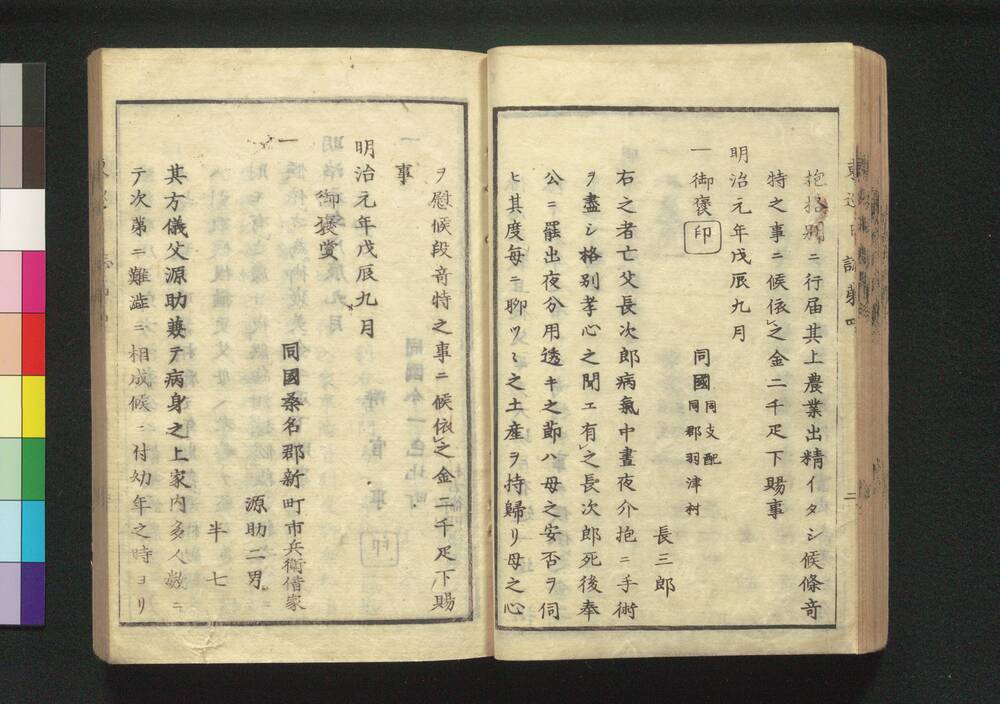 抱格別ニ行届其上農業出精イタシ候條奇
特之事ニ候依之金二千疋下賜事
明治元年戊辰九月
一 御褒 印
同國 同支配
同郡羽津村
長三郎
右之者亡父長次郎病氣中晝夜介抱ニ手術
ヲ盡シ格別孝心之聞エ有之長次郎死後奉
公ニ罷出夜分用透キ之節ハ母之安否ヲ伺
ヒ其度每ニ聊ツヽ之土産ヲ持歸リ母之心
ヲ慰候段奇特之事ニ候依之金二千疋下賜
事
明治元年戊辰九月
一 御褒賞
同國桑名郡新町市兵衛借家
源助二男
半七
其方儀父源助兼テ病身之上家内多人數ニ
テ次第ニ難澁ニ相成候ニ付幼年之時ヨリ